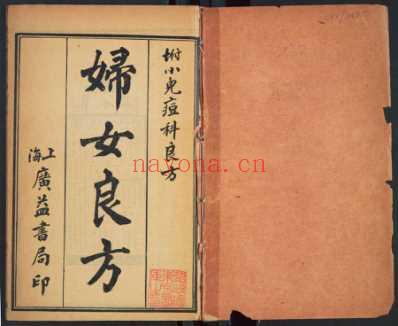 附小兒痘科良方
婦女良方
上海
廣益書局印
nayona.cn